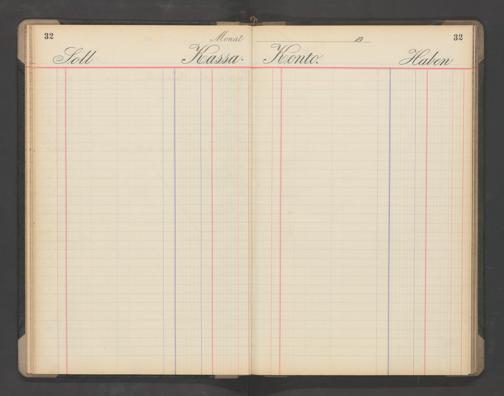 32 Monat 19 32
Soll Kassa- Konto. Haben